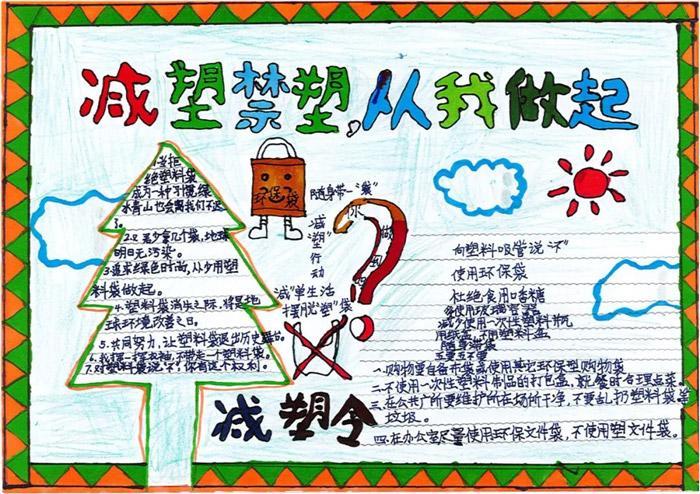 减塑禁塑,从我做起
1.当拒
绝塑料袋
成为一种习惯,绿
水青山也会离我们不远
了。
2.少拿几个袋,地球
明日无污染。
3.追求绿色时尚,从少用塑
料袋做起。
4.塑料袋消失之际,将是地
球环境改善之日。
5.共同努力,让塑料袋退出历史舞台。
6.我挥一挥衣袖,不带走一个塑料袋。
7.对塑料袋说"不",你有这个权利。
环保袋
随身带一"袋"
减"塑"行动
减"单生活
摆脱"塑"袋
你做到
减塑令
向塑料吸管说"不"
使用环保袋
杜绝食用口香糖
多使用玻璃容器
减少使用一次性塑料井瓦
用纸盒,不用塑料盒
随身带袋
五要五不要
一.购物要自备布袋或使用其它环保型购物袋
二.不使用一次性塑料制品的打包盒,就餐时合理点菜。
三.在公共广所要维护所在场所干净,不要乱扔塑料袋等
垃圾。
四.在办公室尽量使用环保文件袋,不使用塑文件袋。